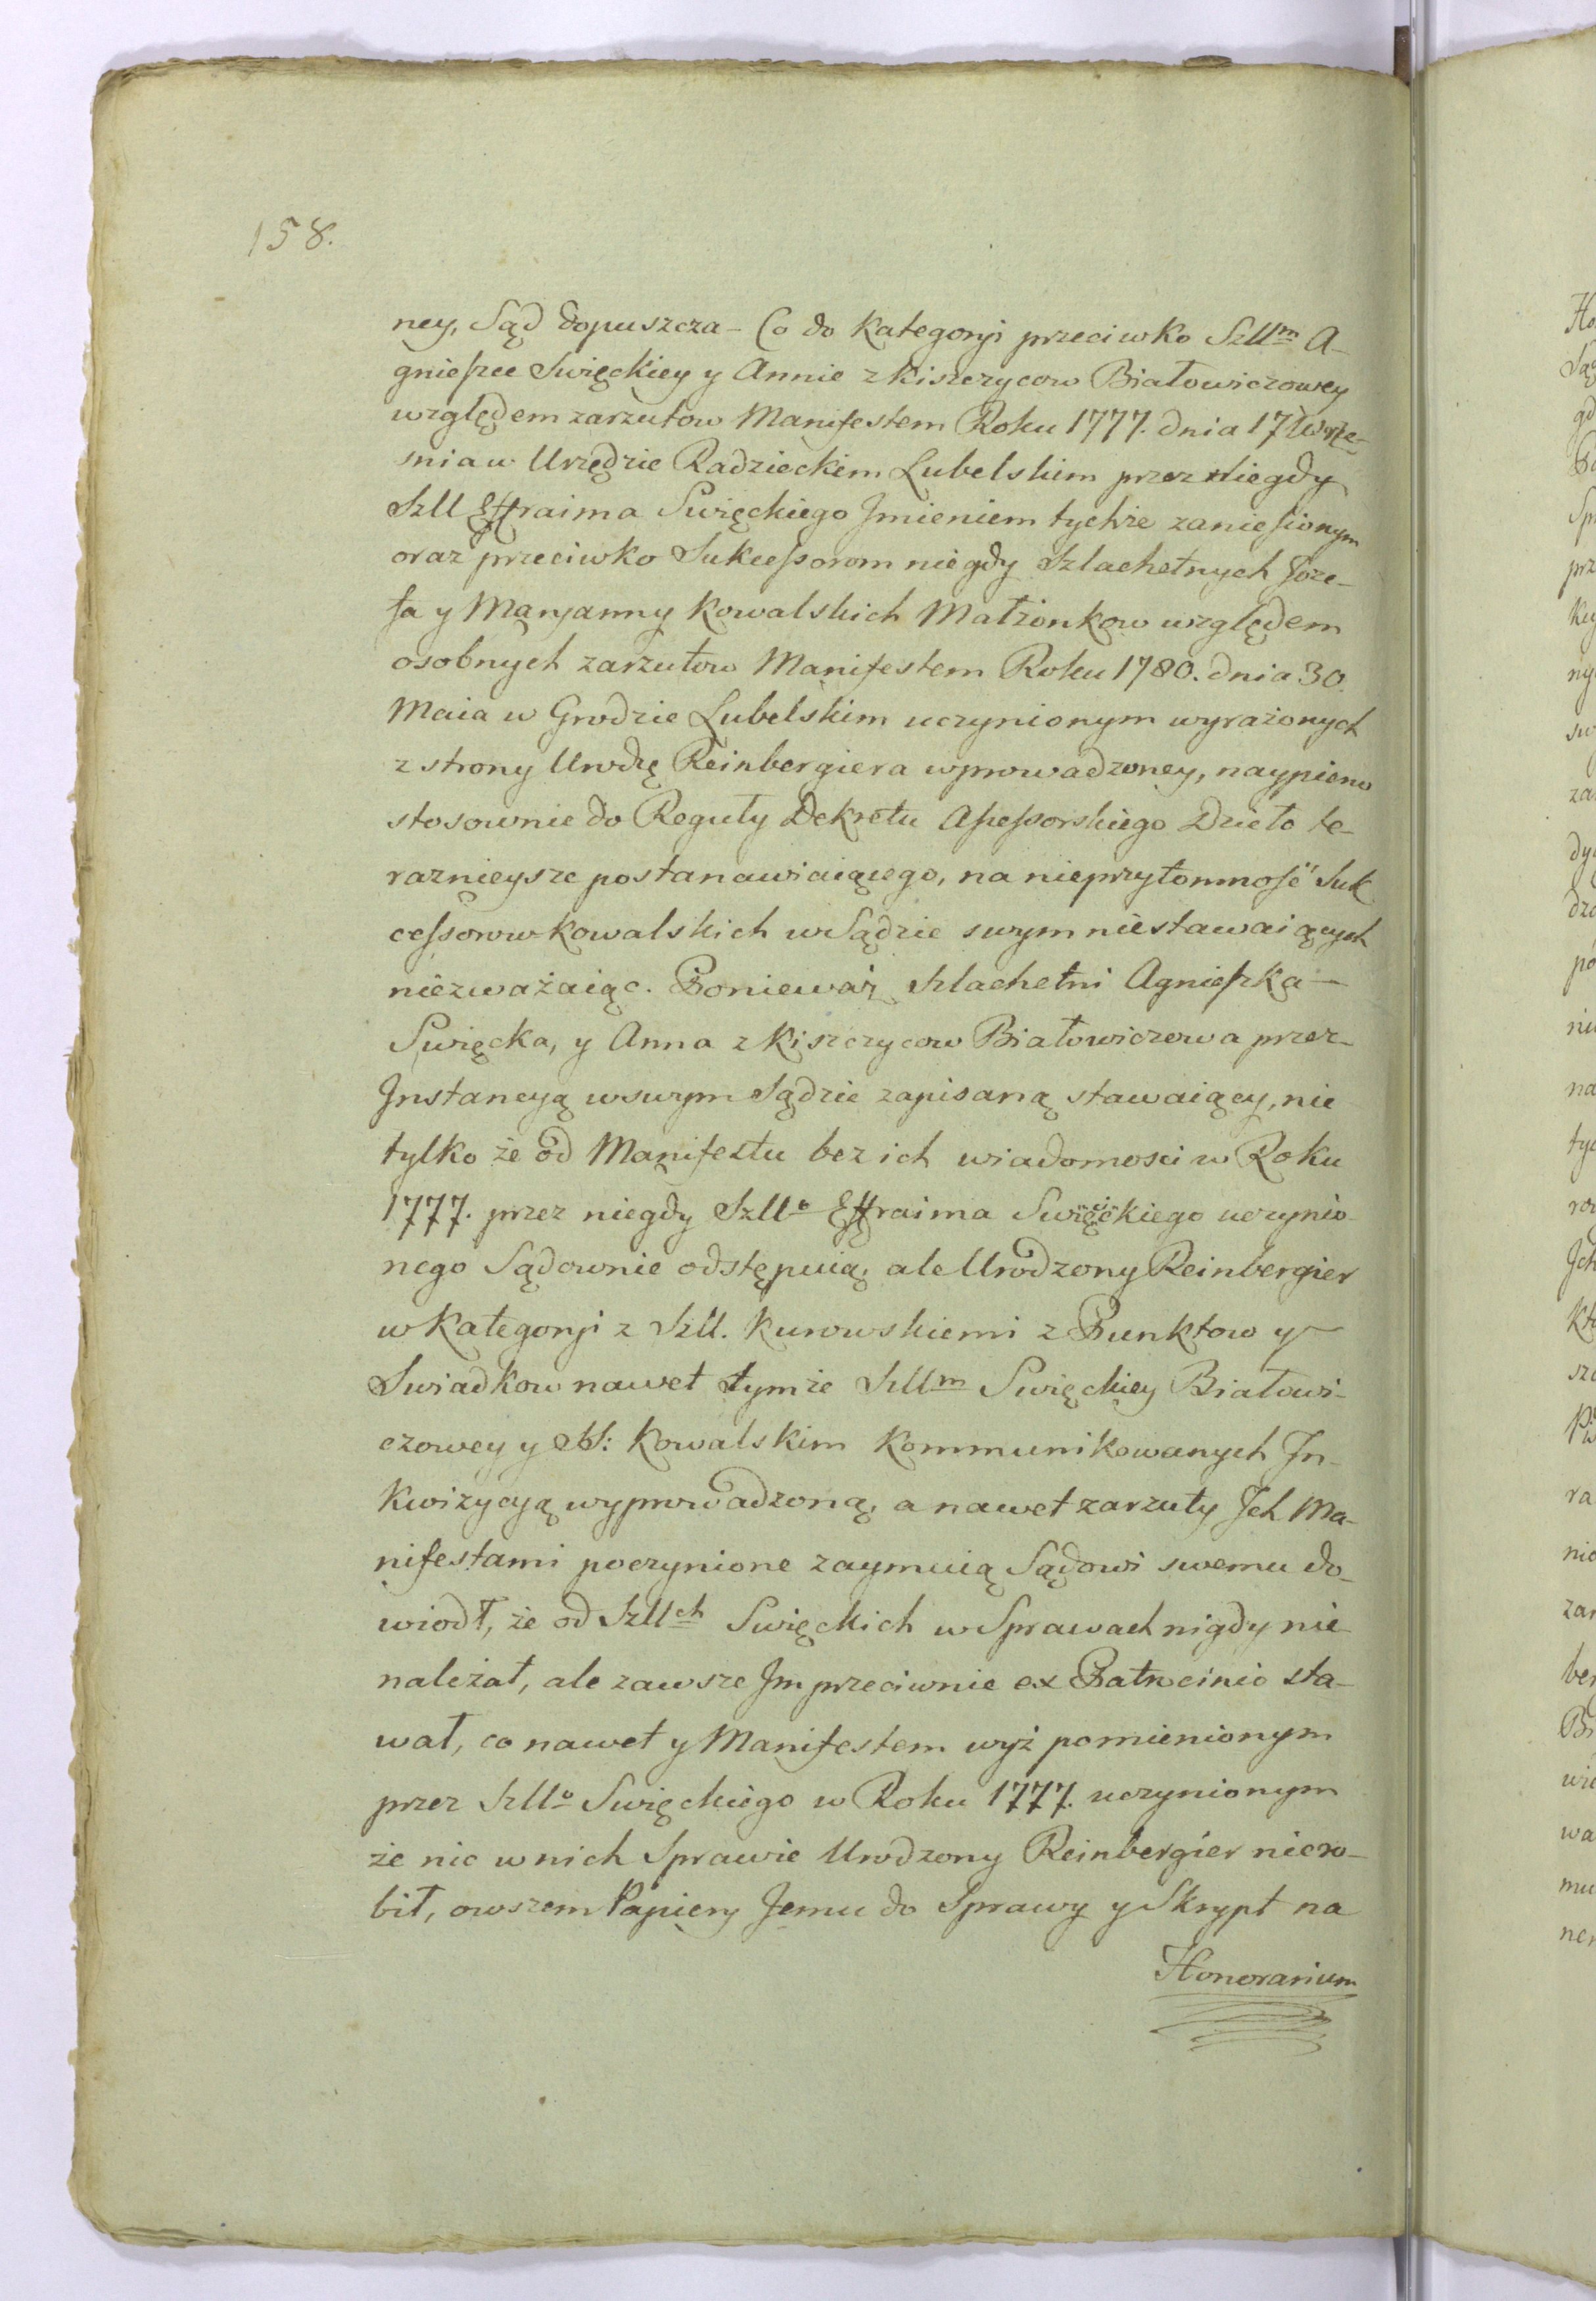 158.
ney, Sąd dopuszcza – Co do Kategoryi przeciwko Szll<sup>m</sup> A-
gnieszce Swięckiey y Annie z Kiszczycow Białowiczowey
względem zarzutow Manifestem Roku 1777. dnia 17 Wrze-
snia w Urzędzie Radzieckim Lubelskim przez niegdy
Szll Effraima Swięckiego Jmieniem tychże zaniesionym
oraz przeciwko Sukcessorom niegdy Szlachetnych Joze-
fa y Maryanny Kowalskich Małżonkow względem
osobnych zarzutow Manifestem Roku 1780. dnia 30.
Maia w Grodzie Lubelskim uczynionym wyrażonych
z strony Urodzę Reinbergiera wprowadzoney, naypierw
stosownie do Reguły Dekretu Assessorskiego Dzieło te-
raznieysze postanawiaiącego, na nieprzytomność Suk
cessorow Kowalskich w Sądzie swym niestawaiących
niezważaiąc. Ponieważ Szlachetni Agnieszka –
Swięcka, y Anna z Kiszczycow Białowiczowa przez
Jnstancyą w swym Sądzie zapisaną stawaiący, nie
tylko że od Manifestu bez ich wiadomosci w Roku
1777. przez niegdy Szll<sup>o</sup> Effraima Swięckiego uczynio-
nego Sądownie odstępuią, ale Urodzony Reinbergier
w Kategoryi z Szll. Kurowskiemi z Punktow y
Swiadkow nawet tymże Szll<sup>m</sup> Swięckiey Białowi-
czowey y SS: Kowalskim Kommunikowanych Jn-
kwizycyą wyprowadzoną, a nawet zarzuty Jch Ma-
nifestami poczynione zaymuią Sądowi swemu do-
wiodł, że od Szll<sup>ch</sup> Swięckich w Sprawach nigdy nie
należał, ale zawsze Jm przeciwnie ex Patrocinio sta-
wał, co nawet y Manifestem wyż pomienionym
przez Szll<sup>o</sup> Swięckiego w Roku 1777. uczynionym
że nic w nich Sprawie Urodzony Reinbergier niezro-
bił, owszem Papiery Jemu do Sprawy y Skrypt na
Honorarium